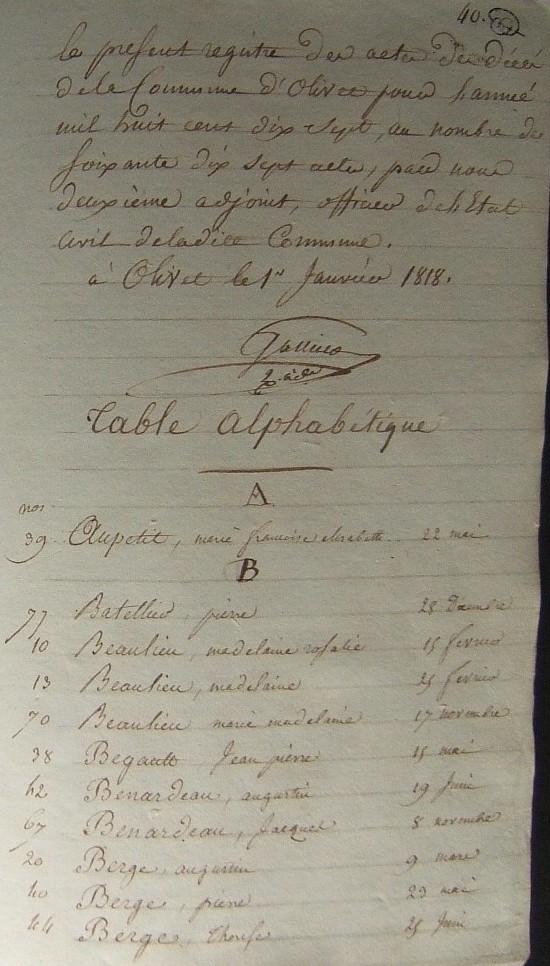 40.
le present registre des actes de décès
de la Commune d'Olivet pour l'année
mil huit cent dix sept, au nombre de
soixante dix sept actes, par nous
deuxième adjoint, officier de l'Etat
civil de ladite Commune.
à Olivet le 1er Janvier 1818.
Table Alphabétique
A
nos
39 Aupetit, marie francoise elisabeth 22 mai
B
77 Batellier, pierre 28 Décembre
10 Beaulieu, madelaine rosalie 15 fevrier
13 Beaulieu, madelaine 25 fevrier
70 Beaulieu marie madelaine 17 novembre
38 Begault Jean pierre 15 mai
42 Benardeau, augustin 19 Juin
67 Benardeau, Jacques 8 novembre
20 Berge, augustin 9 mars
40 Berge, pierre 23 mai
44 Berge, therese 25 Juin